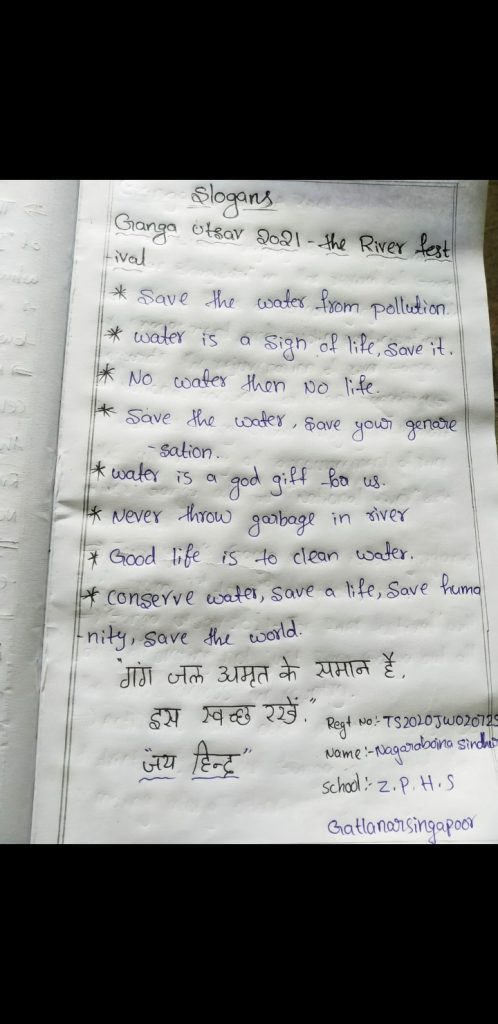 Slogans
Ganga Utsav 2021 - the River fest
-ival
* Save the water from pollution.
* water is a sign of life, save it.
* No water then No life.
* Save the water, save your genare
-sation.
* water is a god gift for us.
* Never throw garbage in river
* Good life is to clean water.
* conserve water, save a life, save huma
-nity, save the world.
"गंग जल अमृत के समान है.
इस स्वच्छ रखें."
"जय हिन्द"
Regt No:- TS2020JW020725
Name:- Nagaraboina Sindhu
School:- Z.P.H.S
Gatlanarsingapoor